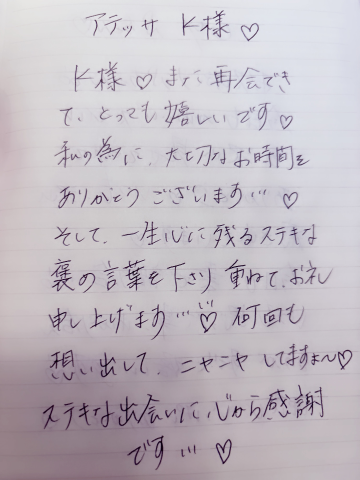 アテッサ K様♡
K様♡また再会でき
て、とっても嬉しいです♡
私の為に、大切なお時間を
ありがとうございます…♡
そして、一生心に残るステキな
褒の言葉を下さり重ねて、お礼
申し上げます…♡何回も
想い出して、ニヤニヤしてますょ〜♡
ステキな出会いに心から感謝
です…♡